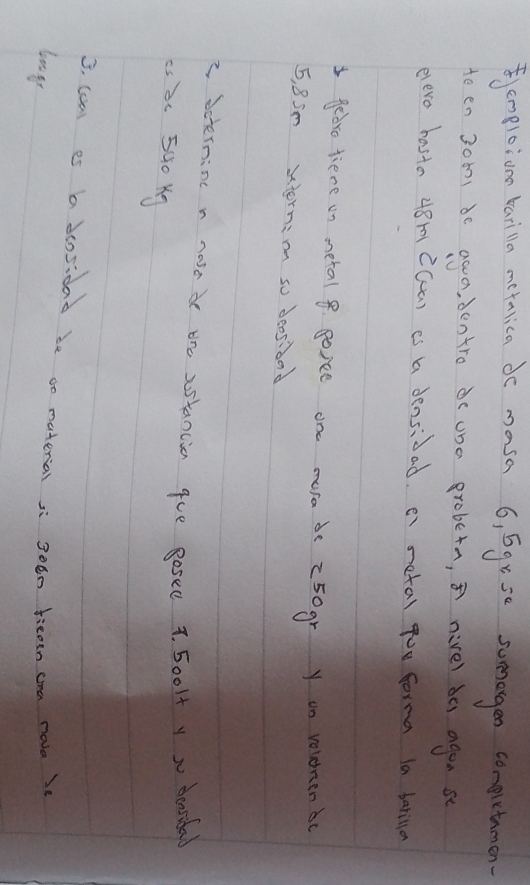 Ejemplo: una barilla metalica de masa 6,5gr se sumergen completamen-
te en 30ml de agua, dentro de una probeta, El nivel del agua se
elevo hasta 48ml ¿Cual es la densidad. el metal que forma la barilla
1 Pedro tiene un metal q. posee una masa de 250gr y un volumen de
5,8 determina su densidad
2, determine n masa de una sustancia que posee 1.500lt y su densidad
es de 540 Kg
3. Cual es la densidad de un material si 30 tienen una masa de